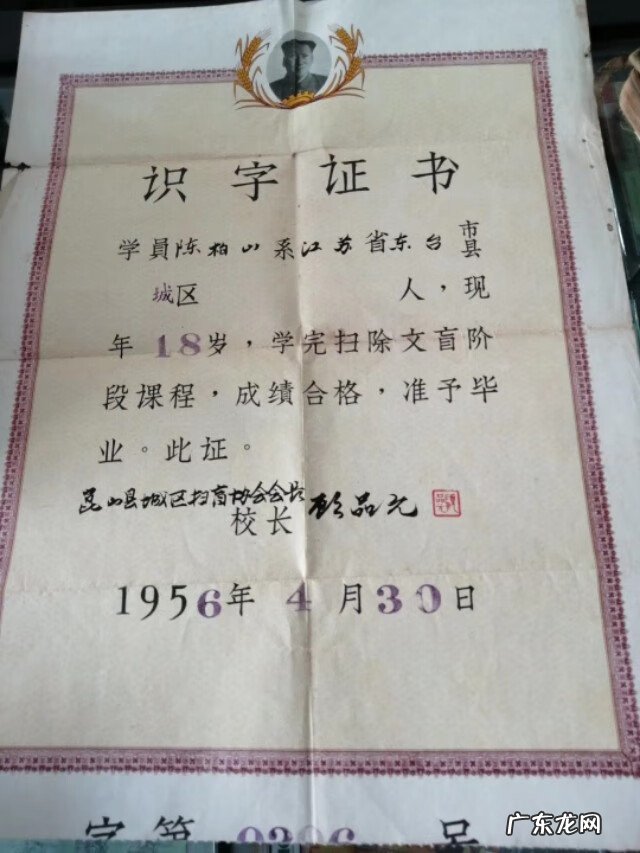 识字证书
学員陈柏山系江苏省东台市县
城区 人，现
年18岁，学完扫除文盲阶
段课程，成绩合格，准予毕
业。此证。
昆山县城区扫盲协会会长
校长 顾品元
1956年4月30日
字第 号
广东龙网